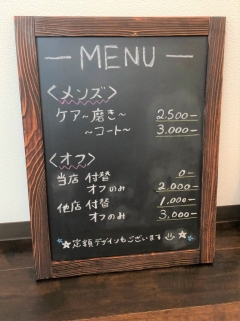 MENU
〈メンズ〉
ケア〜磨き〜 2,500ー
〜コート〜 3,000ー
〈オフ〉
当店 付替 0ー
オフのみ 2,000ー
他店 付替 1,000ー
オフのみ 3,000ー
定額デザインもございます